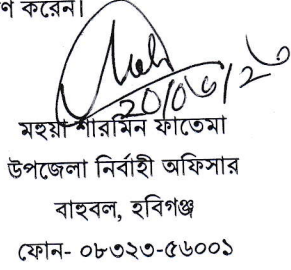 ণ করেন।
20/06/26
মহুয়া শারমিন ফাতেমা
উপজেলা নির্বাহী অফিসার
বাহুবল, হবিগঞ্জ
ফোন- ০৮৩২৩-৫৬০০১